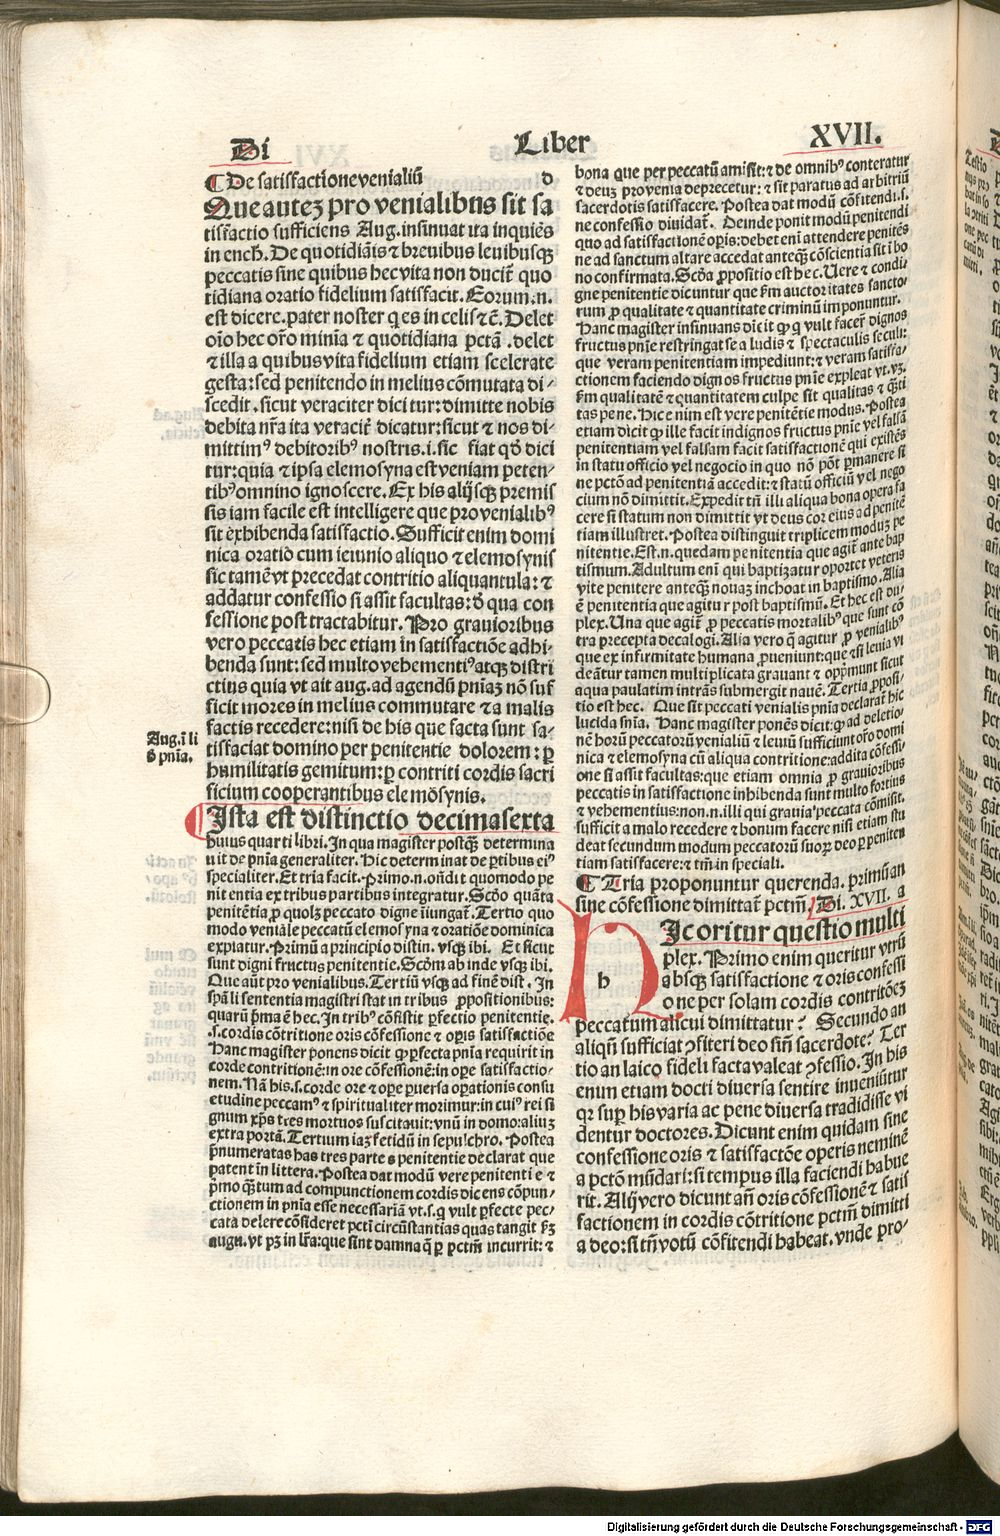 Di
Liber
XVII.
¶ De satisfactione venialiū d
Que autez pro venialibus sit sa
tisfactio sufficiens Aug. insinuat ita inquiēs
in ench. De quotidiāis ⁊ brevibus levibusqꝫ
peccatis sine quibus hec vita non ducit̃ quo
tidiana oratio fidelium satisfacit. Eorum .n.
est dicere. pater noster q̇ es in celis ⁊cẽ. Delet
oīo hec or̄o minīa ⁊ quotidiana pctā . delet
⁊ illa a quibus vita fidelium etiam scelerate
gesta: sed penitendo in melius cōmutata di/
scedit. sicut veraciter dicitur: dimitte nobis
debita nr̄a ita veracit̃ dicatur: sicut ⁊ nos di-
mittimꝰ debitoribꝰ nostris .i. sic fiat qd̄ dici
tur: quia ⁊ ipsa elemosyna est veniam peten-
tibꝰ omnino ignoscere. Ex his alijsqꝫ premis
sis iam facile est intelligere que pro venialibꝰ
sit exhibenda satisfactio. Sufficit enim domi
nica oratio cum ieiunio aliquo ⁊ elemosynis
sic tamē vt precedat contritio aliquantula: ⁊
addatur confessio si assit facultas: d̄ qua con
fessione post tractabitur. Pro gravioribus
vero peccatis hec etiam in satisfactiōe adhi-
benda sunt: sed multo vehementiꝰ atqꝫ distri
ctius quia vt ait aug. ad agendū pnīaꝫ nō suf
ficit mores in melius commutare ⁊ a malis
factis recedere: nisi de his que facta sunt sa-
tisfaciat domino per penitentie dolorem: ꝑ
humilitatis gemitum: ꝑ contriti cordis sacri
ficium cooperantibus elemōsynis.
Aug. ī li
d̄ pnīa.
Ista est distinctio decimasexta
huius quarti libri. In qua magister postqꝫ̃ determina
uit de pnīa generaliter. hic determinat de ꝑtibus eiꝰ
specialiter. Et tria facit. Primo .n. oñdit quomodo pe
nitentia ex tribus partibus integratur. Scd̄o quāta
penitētia ꝓ quolꝫ peccato digne iniungat̃. Tertio quo
modo veniale peccatū elemosyna ⁊ oratiōe dominica
expiatur. Primū a principio distin. vsqꝫ ibi. Et sicut
sunt digni fructus penitentie. Scd̄m ab inde vsqꝫ ibi.
Que aūt pro venialibus. Tertiū vsqꝫ ad finē dist. In
spāli sententia magistri stat in tribus ꝓpositionibus:
quarū p̄ma ē hec. In tribꝰ cōsistit ꝑfectio penitentie
.s. cordis cōtritione oris cōfessione ⁊ oꝑis satisfactiōe
Hanc magister ponens dicit ꝙ ꝑfecta pnīa requirit in
corde contritionē: in ore cōfessionē: in oꝑe satisfactio-
nem. Nā his .s. corde ore ⁊ oꝑe ꝑuersa oꝑationis consu
etudine peccamꝰ ⁊ spiritualiter morimur: in cuiꝰ rei si
gnum xp̄s tres mortuos suscitauit: vnū in domo: aliuꝫ
extra portā. Tertium iaꝫ fetidū in sepulchro. Postea
p̄numeratas has tres partes penitentie declarat que
patent in littera. Postea dat modū vere penitentie ⁊
p̄mo qꝫ̃tum ad compunctionem cordis dicens cōpun/
ctionem in pnīa esse necessariā vt .s. q̇ vult ꝑfecte pec/
cata delere cōsideret pcti circūstantias quas tangit s̄ꝫ
augu. vt pꝫ in lr̄a: que sint damna q̄ ꝑ pctm̄ incurrit: ⁊
bona que per peccatū amisit: ⁊ de omnibꝰ conteratur
⁊ deuꝫ pro venia deprecetur: ⁊ sit paratus ad arbitriū
sacerdotis satisfacere. Postea dat modū cōfitendi .s.
ne confessio diuidat̃. Deinde ponit modū penitendi
quo ad satisfactionē oꝑis: debet enī attendere penitēs
ne ad sanctum altare accedat anteqꝫ̃ cōscientia sit ī bo
no confirmata. Scd̄a ꝓpositio est hec. Uere ⁊ condi/
gne penitentie dicuntur que s̄m auctoritates sancto/
rum ꝓ qualitate ⁊ quantitate criminū imponuntur.
Hanc magister insinuans dicit ꝙ q̇ vult facer̃ dignos
fructus pnīe restringat se a ludis ⁊ spectaculis seculi:
que veram penitentiam impediunt: ⁊ veram satisfa/
ctionem faciendo dignos fructus pnīe expleat vt .vꝫ.
s̄m qualitatē ⁊ quantitatem culpe sit qualitas ⁊ qꝫ̃ti
tas pene. Hic enim est vere penitētie modus. Postea
etiam dicit ꝙ ille facit indignos fructus pnīe vel falsā
penitentiam vel falsam facit satisfactionē qui existēs
in statu officio vel negocio in quo nō pōt ꝑmanere si
ne pctō ad penitentiā accedit: ⁊ statū officiū vel nego
cium nō dimittit. Expedit tn̄ illi aliqua bona opera fa
cere si statum non dimittit vt deus cor eius ad penitē
tiam illustret. Postea distinguit triplicem moduꝫ pe
nitentie. Est .n. quedam penitentia que agit̃ ante bap
tismum. Adultum enī qui baptizatur oportet veteris
vite penitere anteqꝫ̃ nouaꝫ inchoat in baptismo. Alia
ē penitentia que agitur post baptismū. Et hec est du/
plex. Una que agit̃ ꝓ peccatis mortalibꝰ que sunt cō
tra precepta decalogi. Alia vero q̄ agitur ꝓ venialibꝰ
que ex infirmitate humana ꝓueniunt: que ⁊si leuia vi
deātur tamen multiplicata grauant ⁊ opp̄munt sicut
aqua paulatim intrās submergit nauē. Tertia ꝓposi/
tio est hec. Que sit peccati venialis pnīa declarat̃ hic
lucida sn̄ia. Hanc magister ponēs dicit: ꝙ ad deletio/
nē horū peccatorū venialiū ⁊ leuiū sufficiunt or̄o domi
nica ⁊ elemosyna cū aliqua contritione: addita cōfessi/
one si assit facultas: que etiam omnia ꝓ grauioribus
peccatis in satisfactione inhibenda sunt multo fortius
⁊ vehementius: non .n. illi qui grauia peccata cōmisit.
sufficit a malo recedere ⁊ bonum facere nisi etiam stu
deat secundum modum peccatorū suorꝫ deo ꝑ peniten
tiam satisfacere: ⁊ tm̄ in speciali.
¶ Tria proponuntur querenda. primū an
sine cōfessione dimittat̃ pctm̄. Di. XVII. a
h
Ic oritur questio multi
plex. Primo enim queritur vtrū
absqꝫ satisfactione ⁊ oris confessi
one per solam cordis contritōeꝫ
peccatum alicui dimittatur? Secundo an
aliqn̄ sufficiat ꝯfiteri deo sin̄ sacerdote? Ter
tio an laico fideli facta valeat ꝯfessio. In his
enim etiam docti diuersa sentire inueniūtur
qꝛ suꝑ his varia ac pene diuersa tradidisse vi
dentur doctores. Dicunt enim quidam sine
confessione oris ⁊ satisfactōe operis neminē
a pctō mūdari: si tempus illa faciendi habue
rit. Alij vero dicunt an̄ oris cōfessionē ⁊ satis
factionem in cordis cōtritione pctm̄ dimitti
a deo: si tn̄ votū cōfitendi habeat. vnde pro-
Digitalisierung gefördert durch die Deutsche Forschungsgemeinschaft - DFG